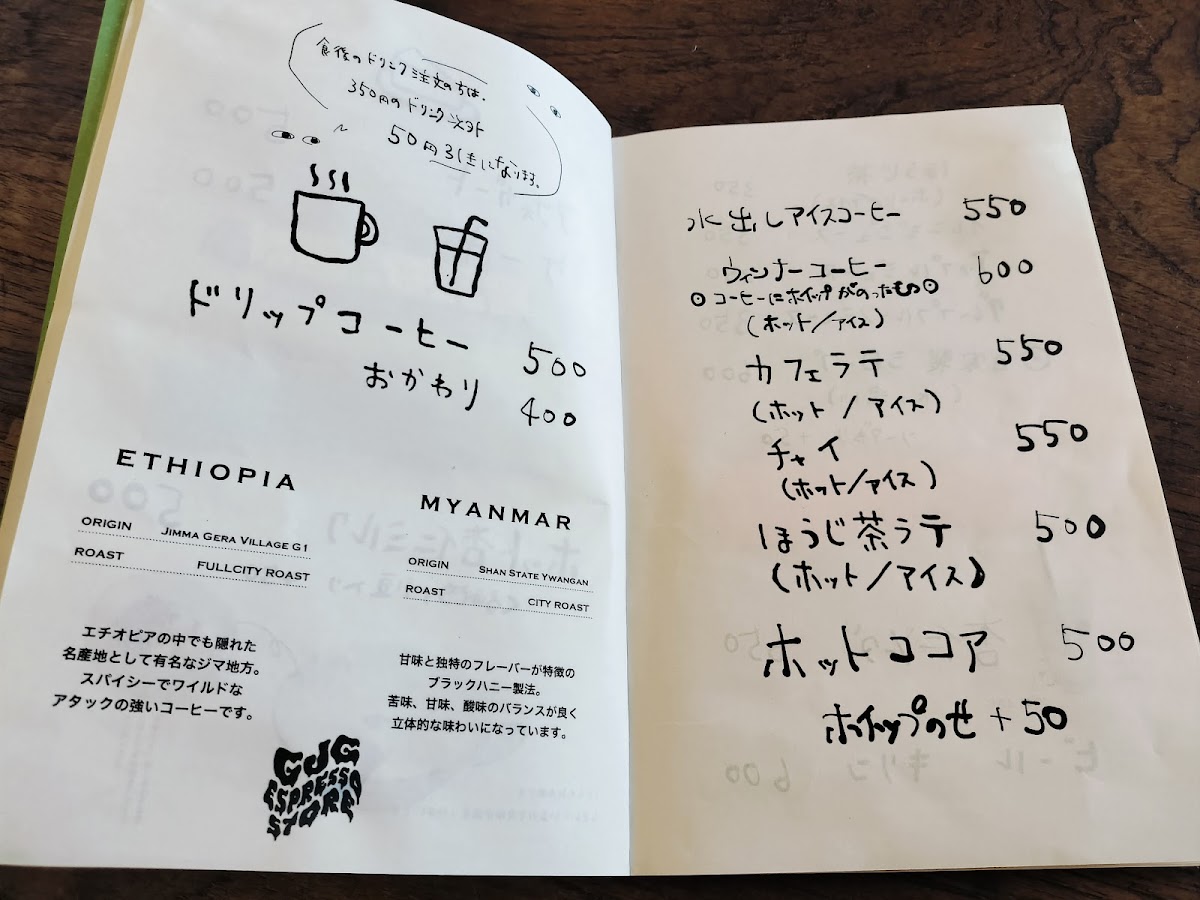 食後のドリンク注文の方は、
350円のドリンク以外
50円引きになります。
ドリップコーヒー 500
おかわり 400
ETHIOPIA
ORIGIN JIMMA GERA VILLAGE G1
ROAST FULLCITY ROAST
エチオピアの中でも隠れた
名産地として有名なジマ地方。
スパイシーでワイルドな
アタックの強いコーヒーです。
MYANMAR
ORIGIN SHAN STATE YWANGAN
ROAST CITY ROAST
甘味と独特のフレーバーが特徴の
ブラックハニー製法。
苦味、甘味、酸味のバランスが良く
立体的な味わいになっています。
GJG
ESPRESSO
STORE
水出しアイスコーヒー 550
ウィンナーコーヒー 600
◎コーヒーにホイップがのったもの◎
(ホット/アイス)
カフェラテ 550
(ホット/アイス)
チャイ 550
(ホット/アイス)
ほうじ茶ラテ 500
(ホット/アイス)
ホットココア 500
ホイップのせ +50